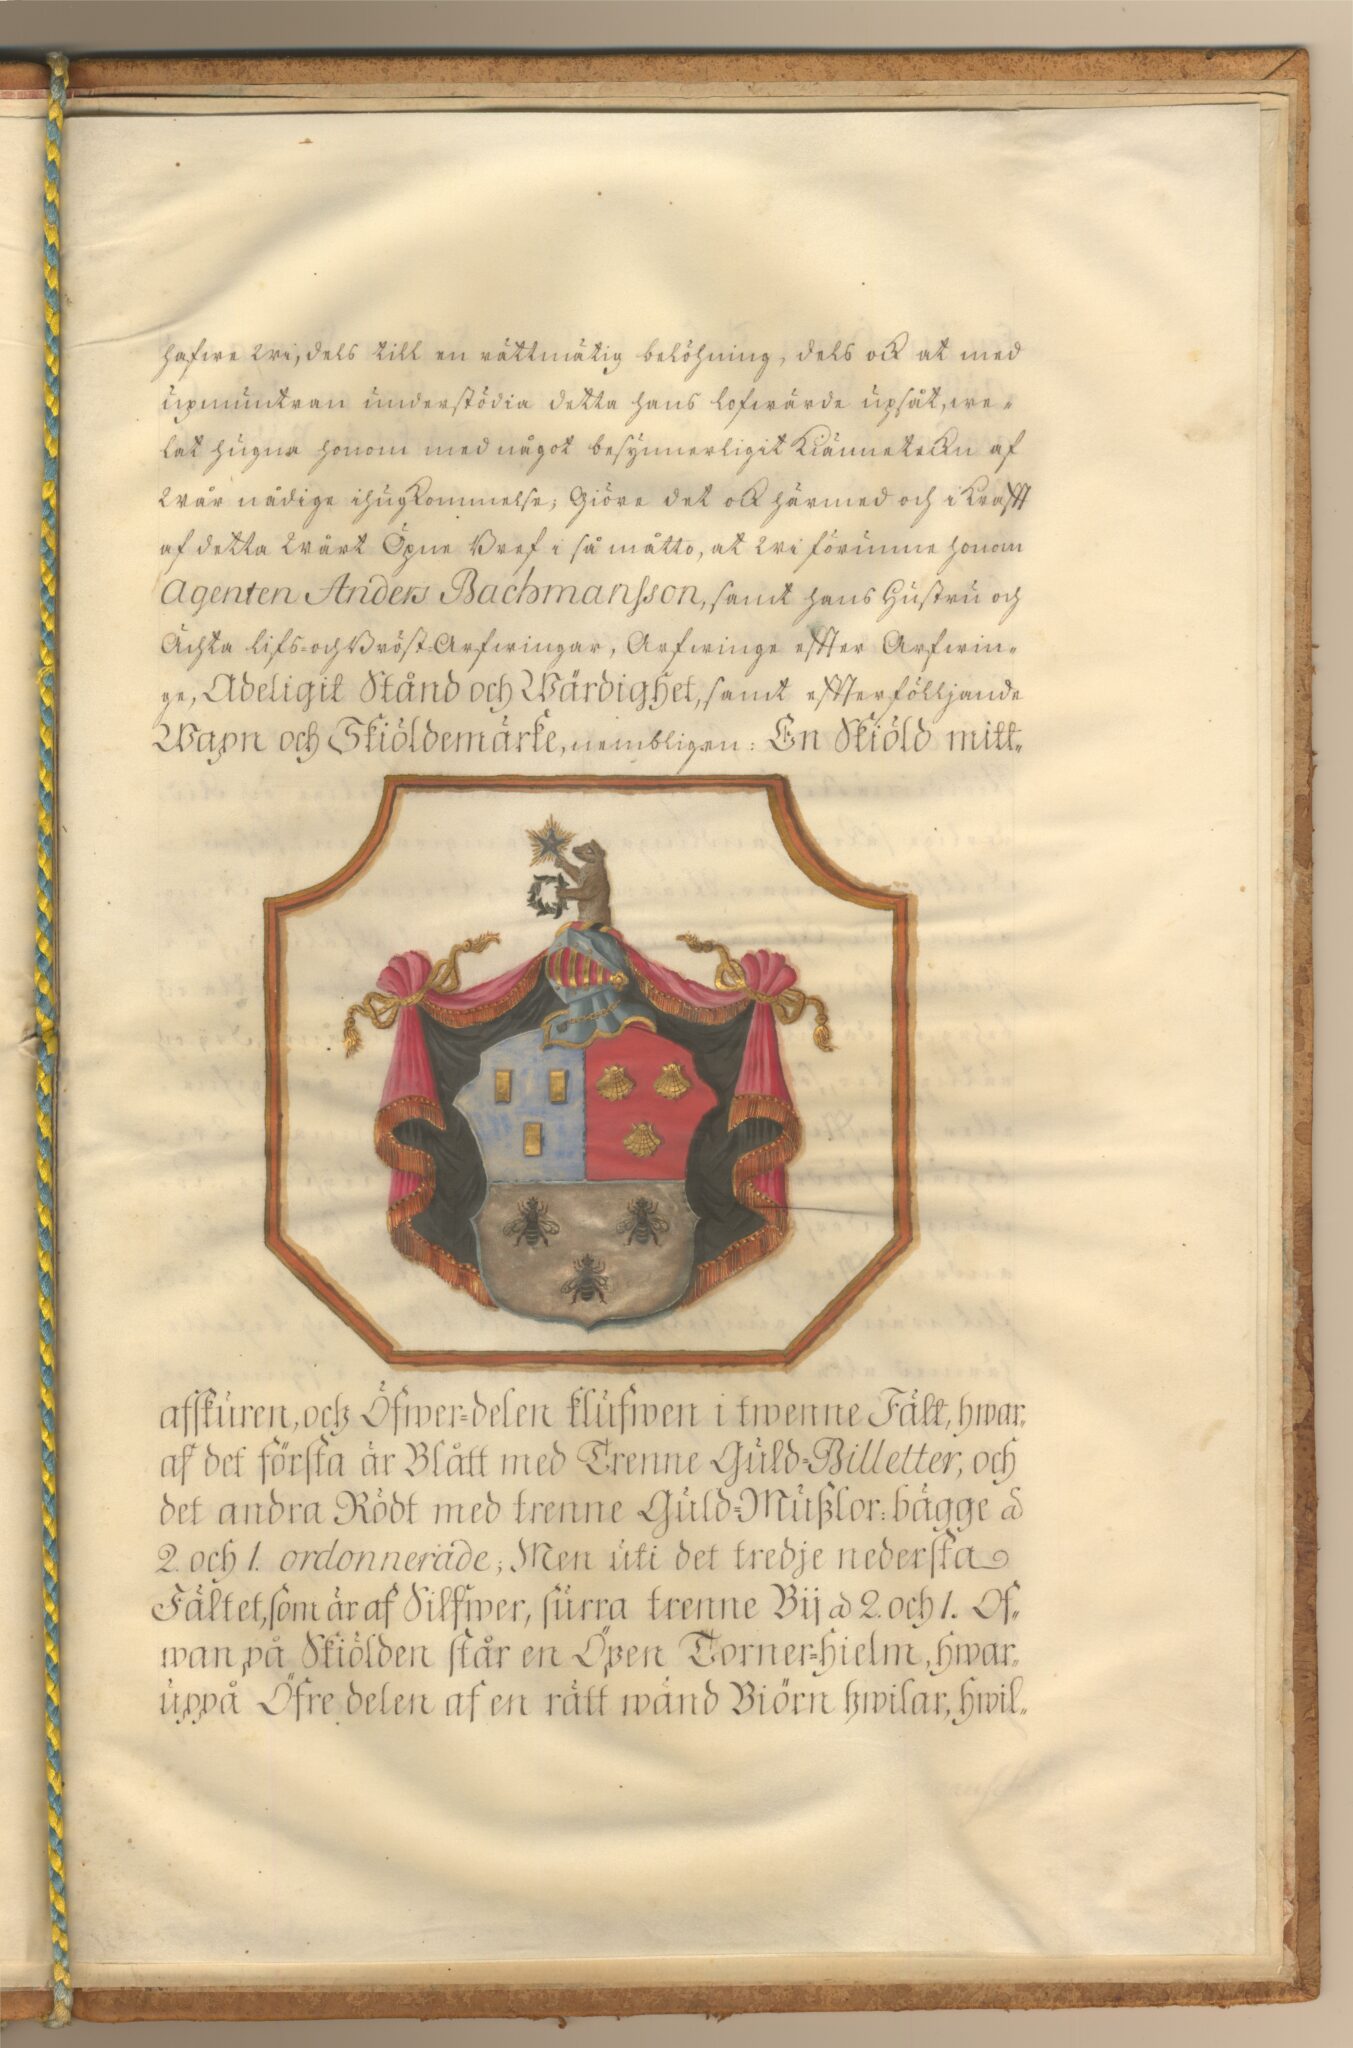 hafwe Wi, dels till en rättmätig belöhning, dels ock at med
üpmüntran ünderstödia detta hans lofwärde üpsåt, we=
lat hügna honom med något besÿnnerligit Kiännetekn af
Wår nådige ihügkommelse; Giöre det ock härmed och i krafft
af detta Wårt Öpne Bref i så måtto, at Wi förünne honom
Agenten Anders Bachmansson, samt hans Hüstrü och
Ächta Lifs=och Bröst=Arfwingar, Arfwinge effter Arfwin=
ge, Adeligit Stånd och Wärdighet, samt effterfölljande
Wapn och Skiöldemärke, nembligen: En Skiöld mitt=
afsküren, och Öfwer=delen klüfwen i twenne Fält, hwar=
af det första är Blått med Trenne Güld=Billetter, och
det andra Rödt med trenne Güld=Müßlor: bägge à
2. och 1. ordonnerade; Men üti det tredje nedersta
Fältet, som är af Silfwer, sürra trenne Bij à 2. och 1. Of=
wan på Skiölden står en Öpen Torner=hielm, hwar=
üppå Öfre delen af en rätt wänd Biörn hwilar, hwil=